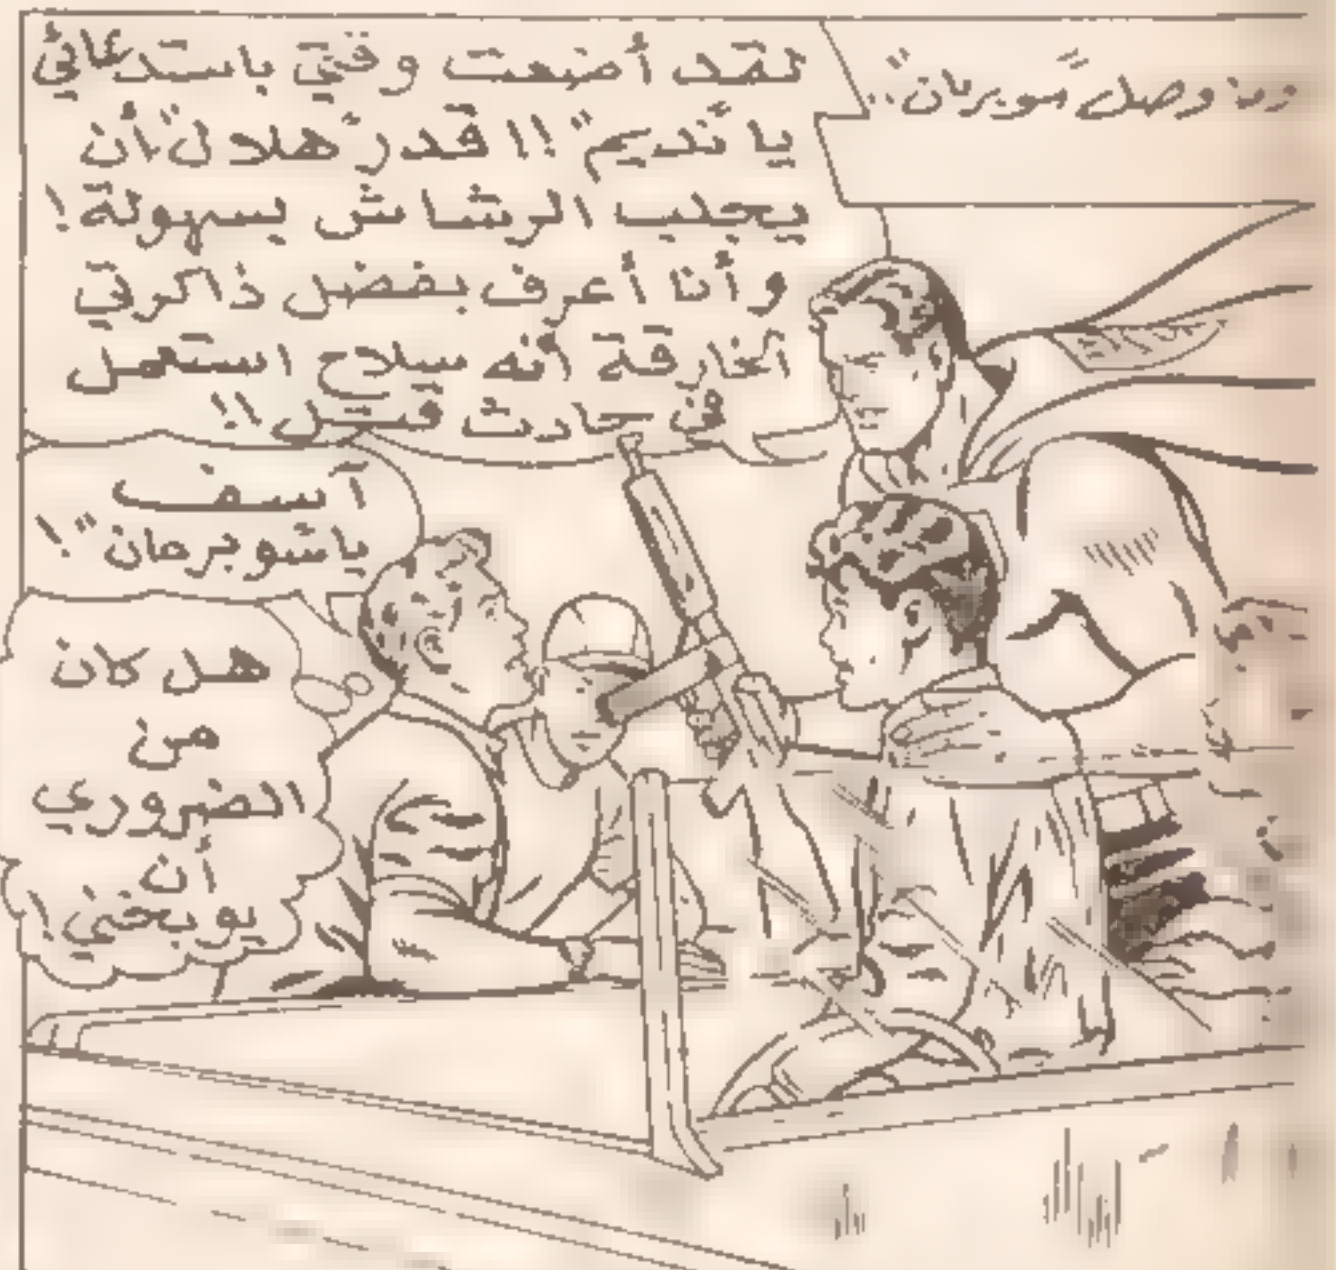 وصل "سوبرمان"..
لقد أضعت وقتي باستدعائي
يا "نديم"!! قدر "هلال" أن
يجلب الرشاش بسهولة!
وأنا أعرف بفضل ذاكرتي
الخارقة أنه سلاح استعمل
في حادث قتل!!
آسف
يا "سوبرمان"!
هل كان
من
الضروري
أن
يوبخني!